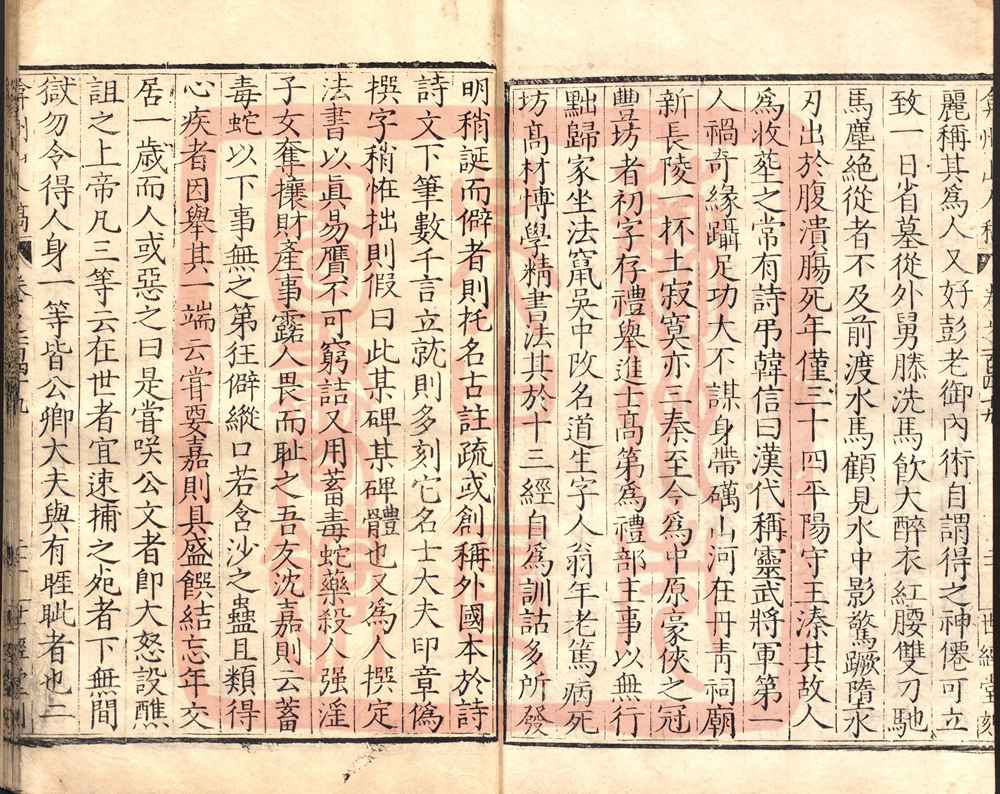 麗稱其爲人又好彭老御內術自謂得之神僊可立
致一日省墓從外舅滕洗馬飲大醉衣紅腰雙刀馳
馬塵絕從者不及前渡水馬顧見水中影驚蹶墮水
刃出於腹潰腸死年僅三十四平陽守王溱其故人
爲收葬之常有詩弔韓信曰漢代稱靈武將軍第一
人禍奇緣躡足功大不謀身帶礪山河在丹青祠廟
新長陵一杯土寂寞亦三秦至今爲中原豪俠之冠
豐坊者初字存禮舉進士高第爲禮部主事以無行
黜歸家坐法竄吳中改名道生字人翁年老篤病死
坊高材博學精書法其於十三經自爲訓詁多所發
明稍誕而僻者則托名古註疏或創稱外國本於詩
詩文下筆數千言立就則多刻它名士大夫印章僞
撰字稍恠拙則假曰此某碑某碑體也又爲人撰定
法書以眞易贗不可窮詰又用蓄毒蛇藥殺人强淫
子女奪攘財產事露人畏而恥之吾友沈嘉則云蓄
毒蛇以下事無之第狂僻縱口若含沙之蠱且類得
心疾者因舉其一端云甞要嘉則具盛饌結忘年交
居一歲而人或惡之曰是甞咲公文者卽大怒設醮
詛之上帝凡三等云在世者宜速捕之死者下無間
獄勿令得人身一等皆公卿大夫與有睚眦者也二